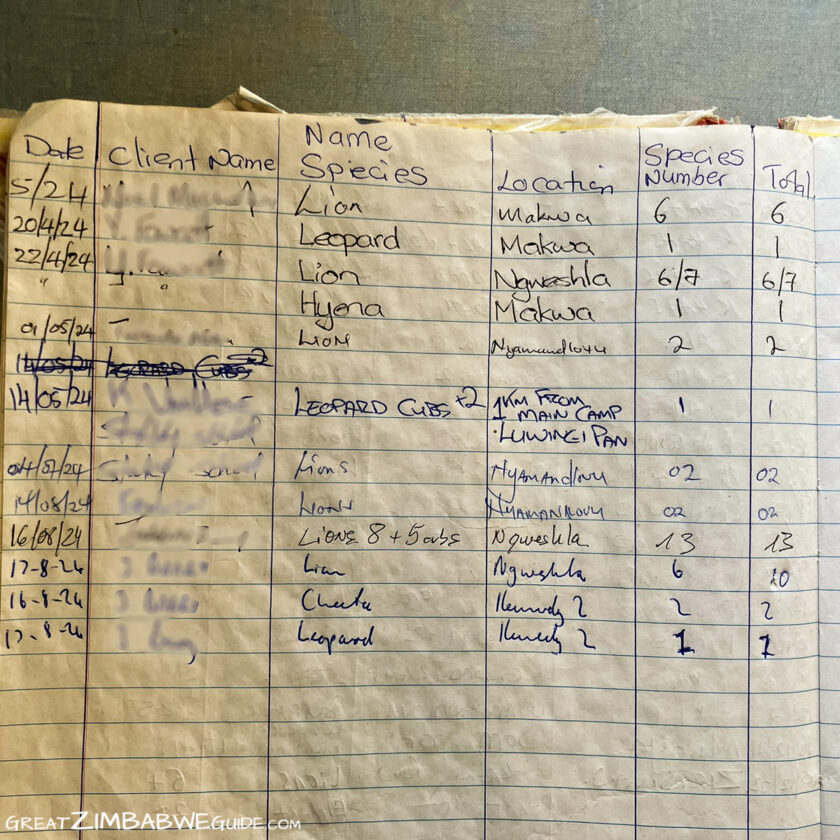 Date Client Name Name Spiecies Location Species Number Total
5/24 Lion Makwa 6 6
20/4/24 Leopard Makwa 1 1
22/4/24 Lion Ngweshla 6/7 6/7
" " Hyena Makwa 1 1
01/05/24 Lion Nyamandlovu 2 2
14/05/24 LEOPARD CUBS 2
14/05/24 LEOPARD CUBS +2 1KM FROM MAIN CAMP 1 1
LUWINGI PAN
04/07/24 Lions Nyamandlovu 02 02
14/08/24 Lions NYAMANDLOVU 02 02
16/08/24 LIONS 8 + 5 cubs Ngweshla 13 13
17-8-24 Lion Ngweshla 6 20
16-8-24 Cheeta Kennedy 2 2 2
17-8-24 Leopard Kennedy 2 1 1
GREATZIMBABWEGUIDE.COM